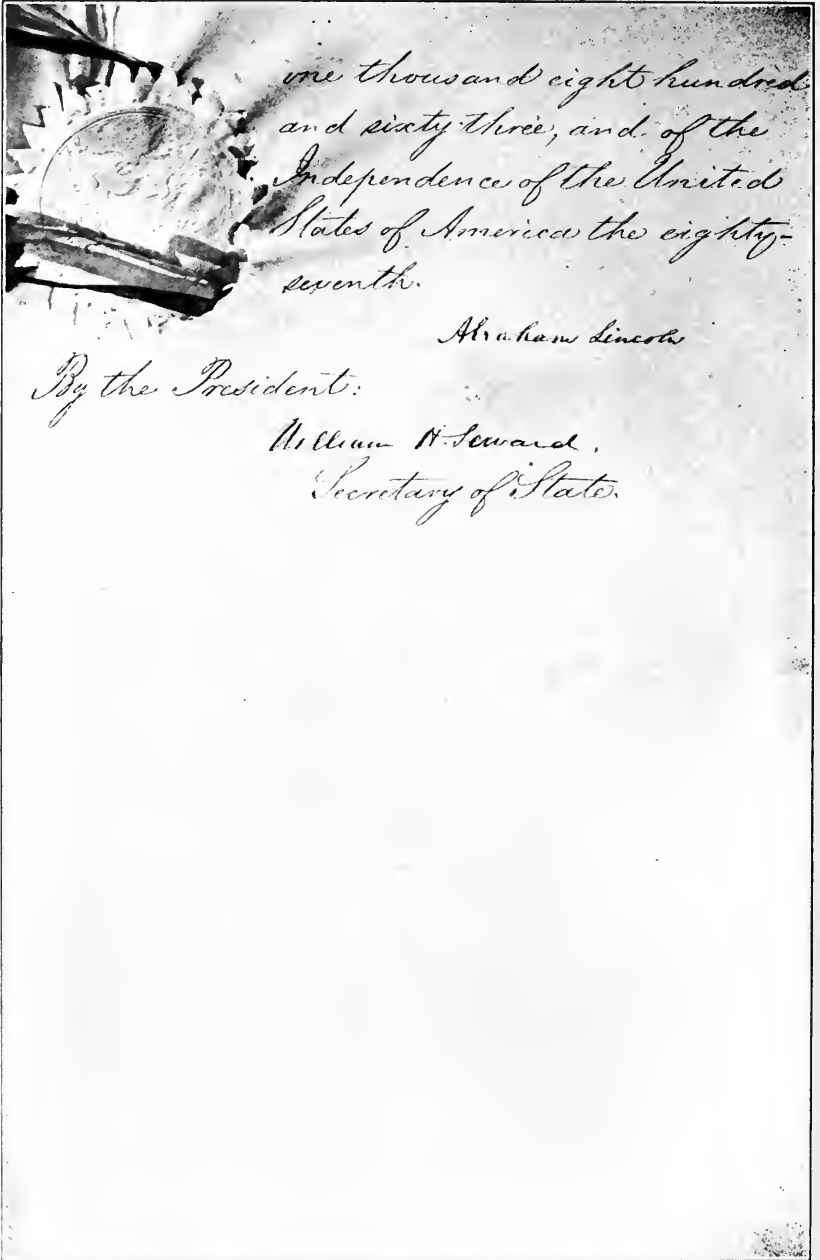 one thousand eight hundred
and sixty three, and of the
Independence of the United
States of America the eighty-
seventh.
Abraham Lincoln
By the President:
William H. Seward.
Secretary of State.